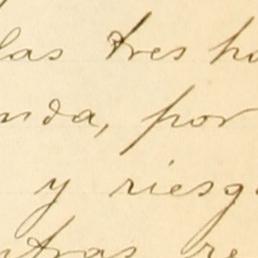 las tres ho
nda, por
y riesg
ntras re